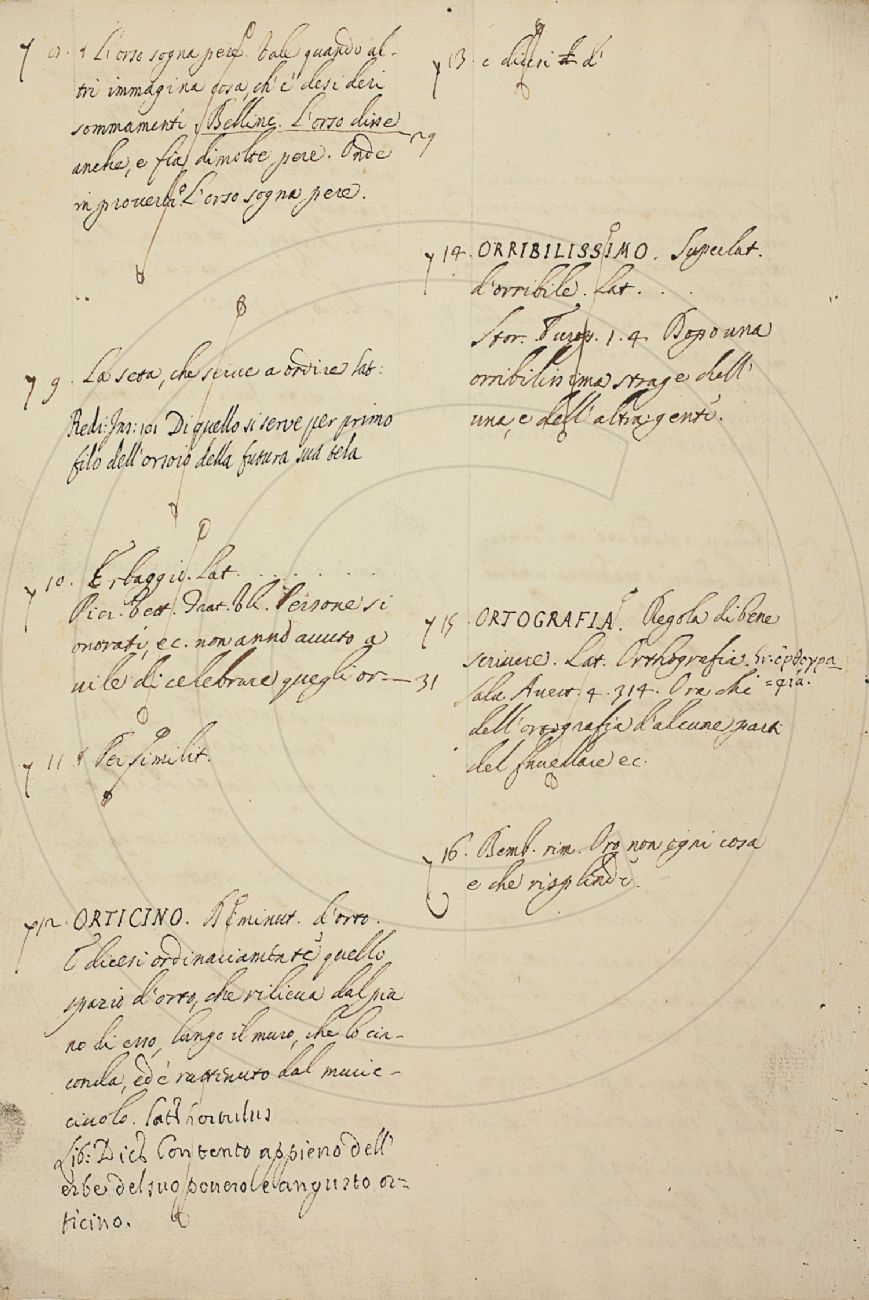 8. § L'orso sogna pere. Vale quando al-
tri immagina cosa, ch' e' desideri
sommamente. Bellinc. L'orso disse 29
anche, e fia di molte pere. Onde
in proverb.o L'orso sogna pere.
9. La seta, che serve a ordire lat:
Redi: Ins: 101 Di quello si serve per primo
filo dell'orsoio della futura sua tela
10. Erbaggio. Lat. . . . . .
Pist. Persone sì
onorate, ec. non anno avuto a
vile di celebrare quegli or- 31
11 § Per similit.
12. ORTICINO. Diminut. d'orto.
E dicesi ordinariamente quello
spazio d'orto, che rilieva dal pia
no di esso, lungo il muro, che lo cir-
conda, ed è rattenuto dal muric-
ciuolo. Lat. hortulus
Lib: Dicr. Contento appieno dell'
erbe del suo povero, e angusto or=
ticino.
13. e dicesi d'
14. ORRIBILISSIMO. Superlat.
d'orribile. Lat. . . .
Stor. Europ. 1. 4. Dopo una
orribilissima strage dell'
una, e dell' altra gente.
15 ORTOGRAFIA. Regola di bene
scrivere. Lat. Orthografia. Gr. ὀρθογρα
=φία.
Salv. Avert. 4. 314. Ora che
dell'ortografia d'alcune parti
del favellare ec.
16. Bemb. rim. Oro non ogni cosa
e che risplende.